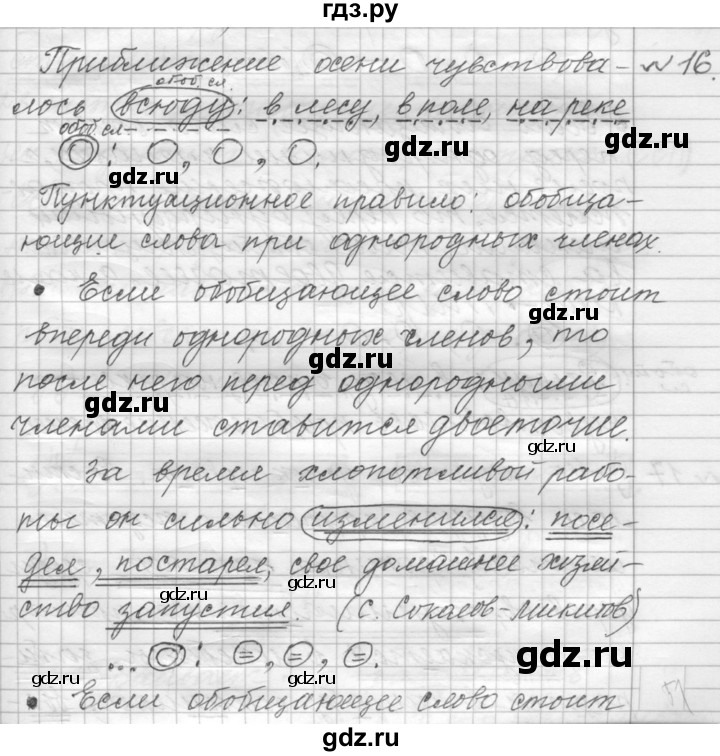 гдз.ру
Приближение осени чувствова- №16.
обоб. сл.
лось всюду: в лесу, в поле, на реке
обоб. сл
О: О, О, О.
gdz.ru gdz.ru
Пунктуационное правило: обобща-
ющие слова при однородных членах.
• Если обобщающее слово стоит
gdz.ru
впереди однородных членов, то
gdz.ru
после него перед однородными
gdz.ru
членами ставится двоеточие.
gdz.ru
За время хлопотливой рабо-
gdz.ru
ты он сильно изменился: посе-
gdz.ru
дел, постарел, свое домашнее хозяй-
gdz.ru gdz.ru
ство запустил. (С. Соколов-Микитов)
... О: =, =, =.
gdz.ru
gdz.ru gdz.ru
• Если обобщающее слово стоит
gdz.ru